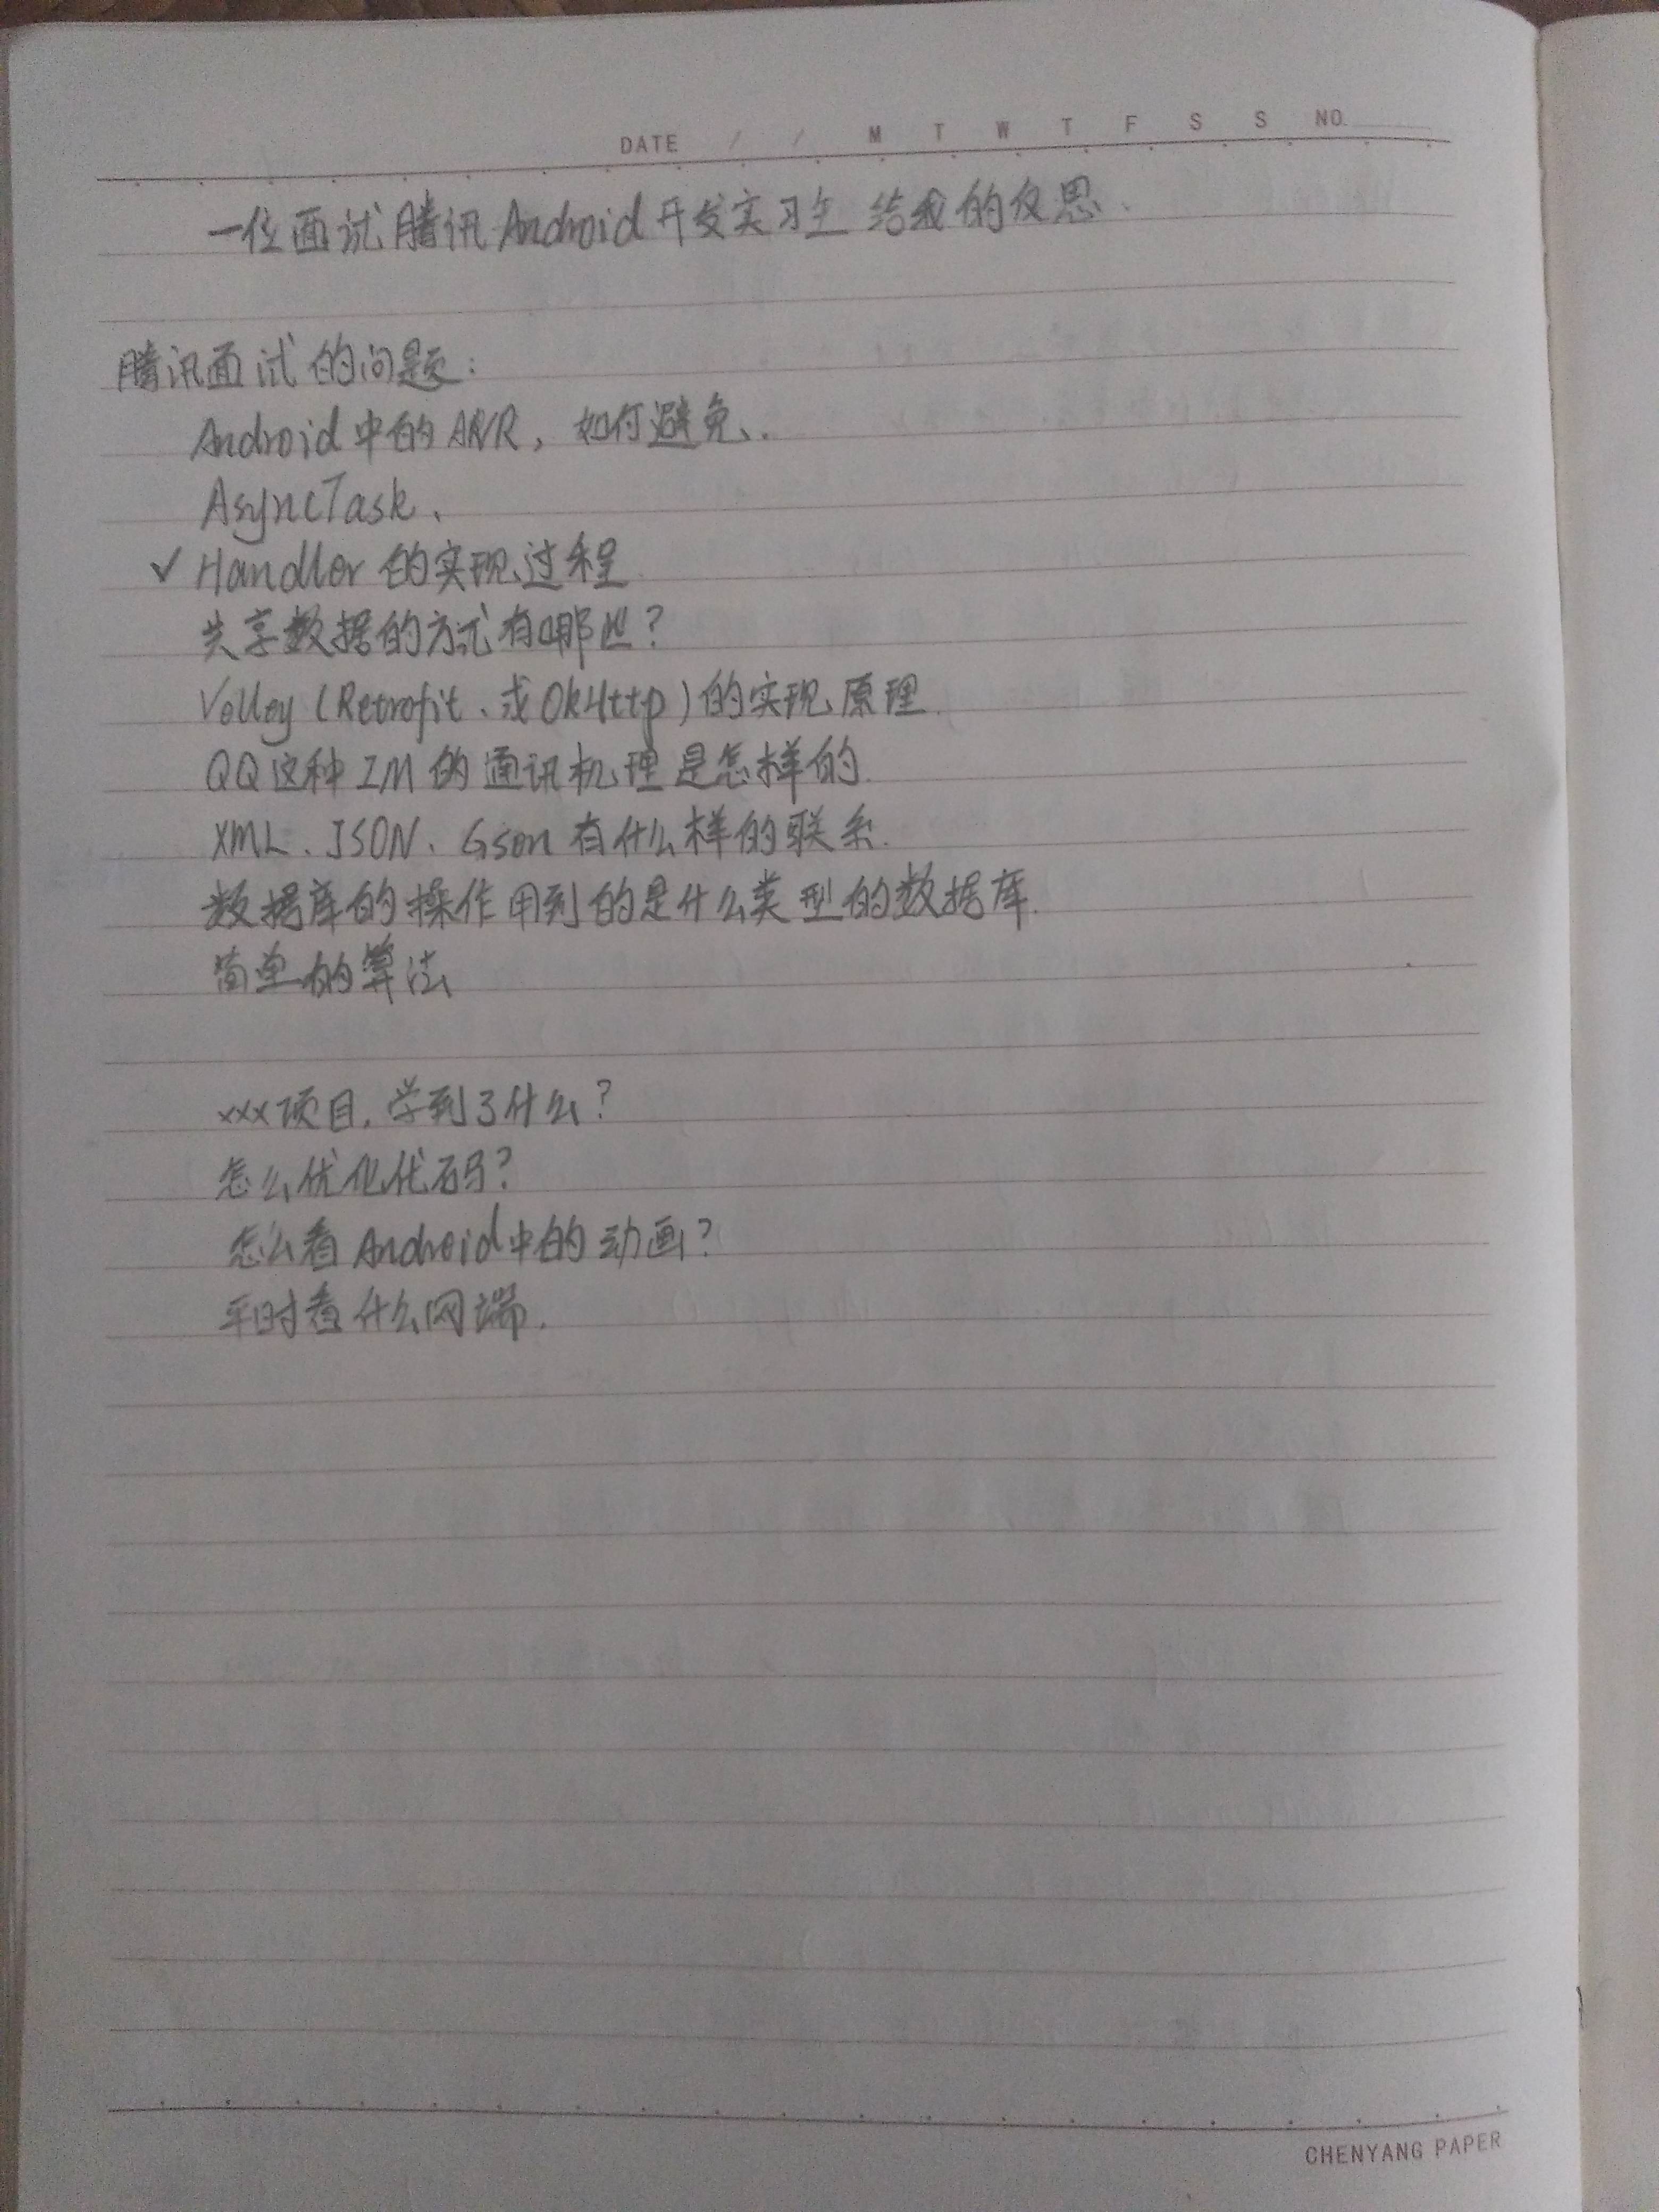 DATE / / M T W T F S S NO.
一位面试腾讯Android开发实习生给我的反思.
腾讯面试的问题:
Android中的ANR, 如何避免、.
AsyncTask、
✓ Handler的实现过程
共享数据的方式有哪些?
Volley (Retrofit、或OkHttp)的实现原理.
QQ这种IM的通讯机理是怎样的.
XML、JSON、Gson有什么样的联系.
数据库的操作用到的是什么类型的数据库.
简单的算法
xxx项目, 学到了什么?
怎么优化代码?
怎么看Android中的动画?
平时看什么网端.
CHENYANG PAPER